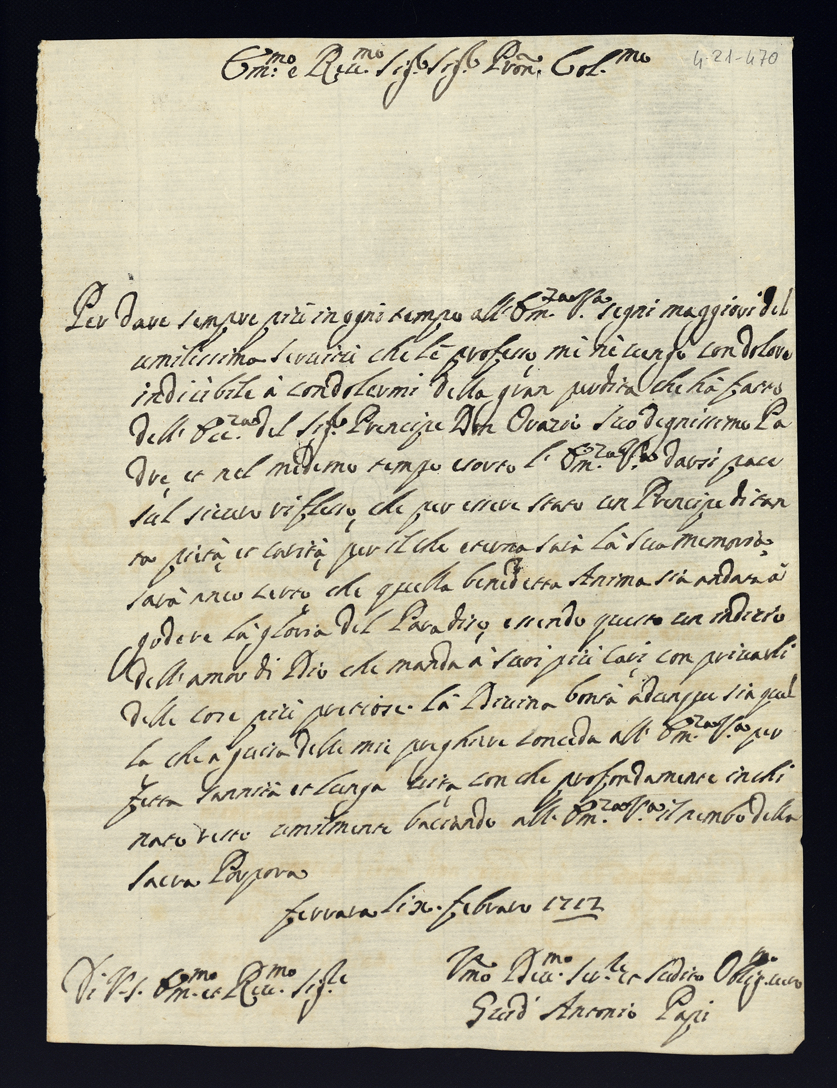 Em.mo e Rev.mo Sig.r Sig.r Pron. Col.mo
4-21-470
Per dare sempre più in ogni tempo all' Em.za V.a segni maggiori del
umilissimo servitù che le professo, mi ne vengo con dolore
indicibile à condolermi della gran perdita che hà fatto
dell' Ecc.za del Sig.r Prencipe Don Orazio suo degnissimo Pa
dre, et nel medemo tempo esorto l' Em.za V.a darsi pace
sul sicuro riflesso, che per essere stato un Prencipe di tan
ta pietà, et carità, per il che eterna sarà la sua memoria,
sarà anco certo che quella benedetta Anima sia andata à
godere la gloria del Paradiso, essendo questo un indizio
dell' amor di Dio che manda à suoi più cari con privarli
delle cose più preciose. La Divina bontà adunque sia quel
la che a guisa delle mie preghiere conceda all' Em.za V.a per
fetta sannità et lunga vita con che profondamente inchi
nato resto umilmente baciando all' Em.za V.a il lembo della
sacra Porpora
Ferrara li x. Febraro 1712
Di V.S. Em.ma et Rev.ma Sig.re
Um.o Dev.mo Ser.re et Sudito Oblig.mo
Guid' Antonio Papi